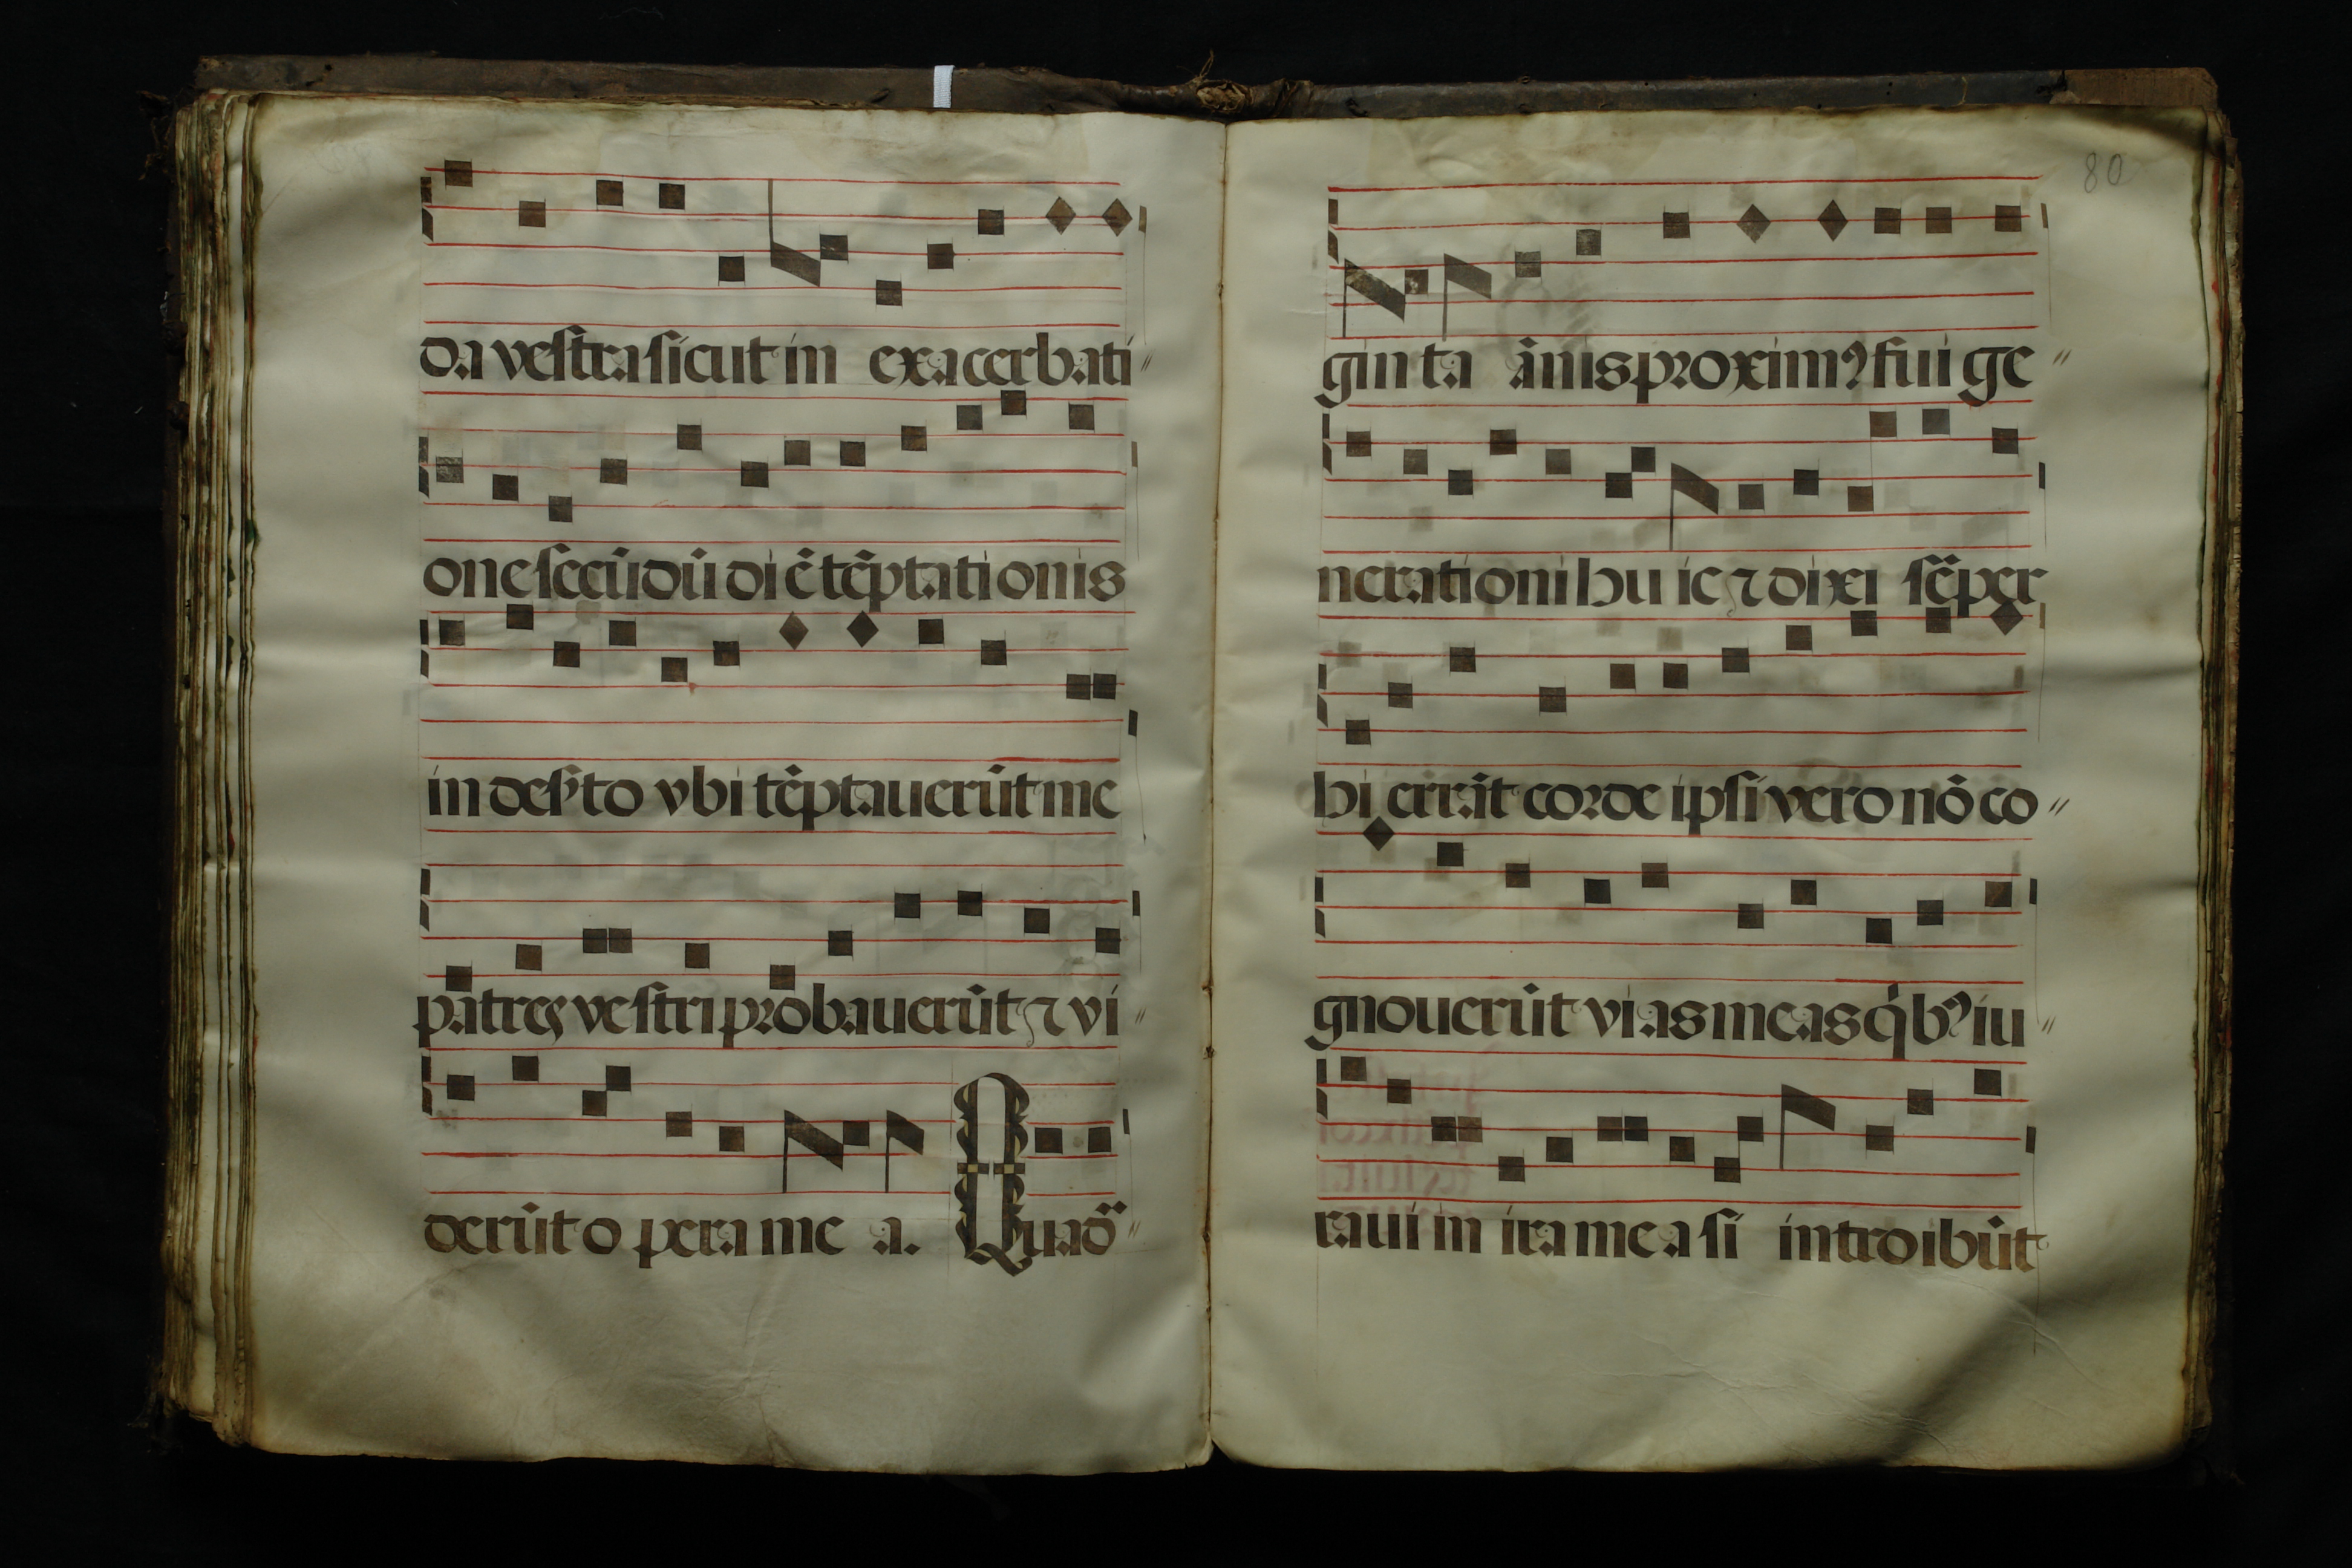 da vestra sicut in exacerbati〃
one secūdū diē tēptationis
in des̾to vbi tēptauerūt me
patres vestri probauerūt ⁊ vi〃
derūt opera mea. Quad̃〃
80
ginta ãnis proximꝰ fui ge〃
nerationi huic ⁊ dixi sēper
hi errāt corde ipsi vero nō co〃
gnouerūt vias meas qͥbꝰ iu〃
raui in ira mea si introibūt